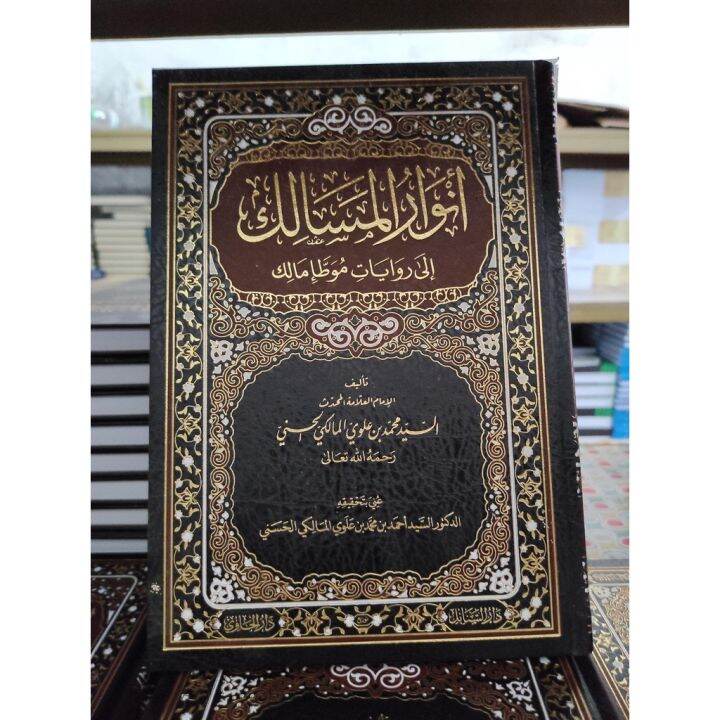 أنوار المسالك
إلى روايات موطإ مالك
تأليف
الإمام العلامة المحدث
السيد محمد بن علوي المالكي الحسني
رحمه الله تعالى
عني بتحقيقه
الدكتور السيد احمد بن محمد بن علوي المالكي الحسني
دار السنابل
دار الحاوي